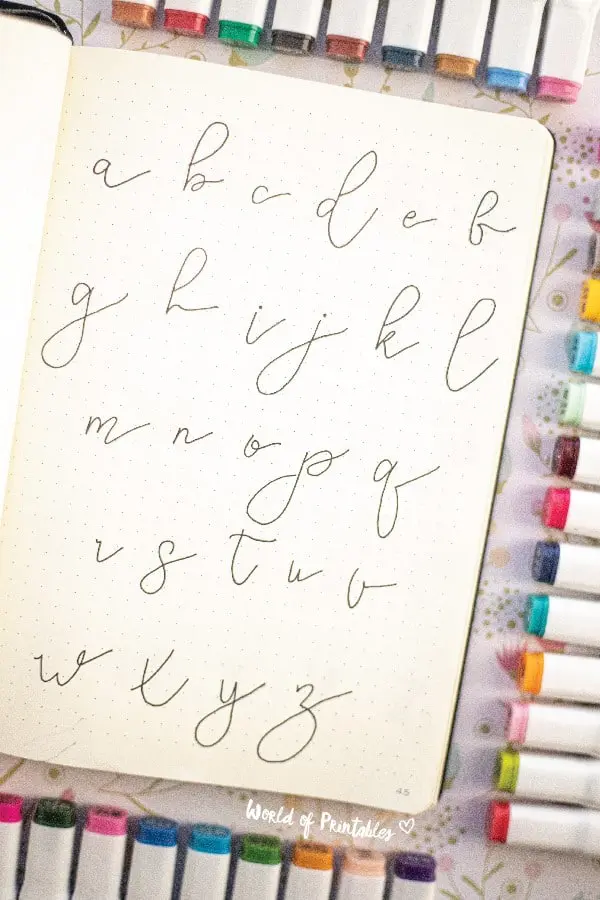 a b c d e f
g h i j k l
m n o p q
r s t u v
w x y z
45
World of Printables